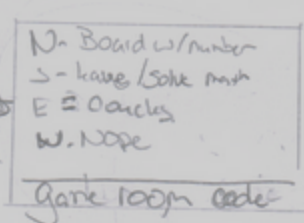 N- Board w/number
S- leave/solve math
E =
W. Nope
game room code